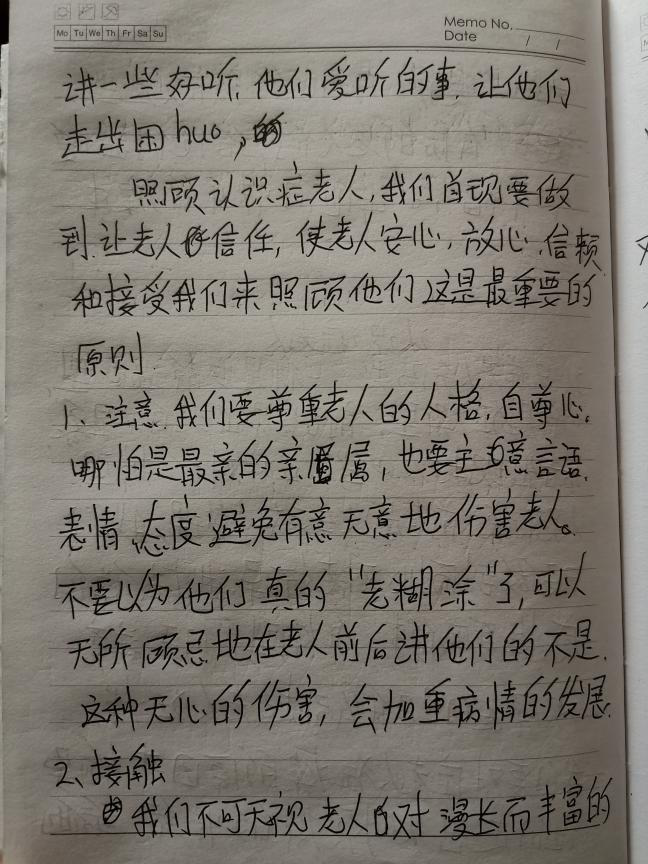 Memo No.
Mo Tu We Th Fr Sa Su
Date / /
讲一些好听,他们爱听的事,让他们
走出困huo,
照顾认识症老人,我们首现要做
到让老人信任,使老人安心,放心,信赖
和接受我们来照顾他们,这是最重要的
原则
1、注意,我们要尊重老人的人格,自尊心。
哪怕是最亲的亲属,也要主意言语,
表情、态度,避免有意无意地伤害老人。
不要以为他们真的"老糊涂"了,可以
无所顾忌地在老人前后讲他们的不是,
这种无心的伤害,会加重病情的发展,
2、接触
我们不可无视老人的对漫长而丰富的